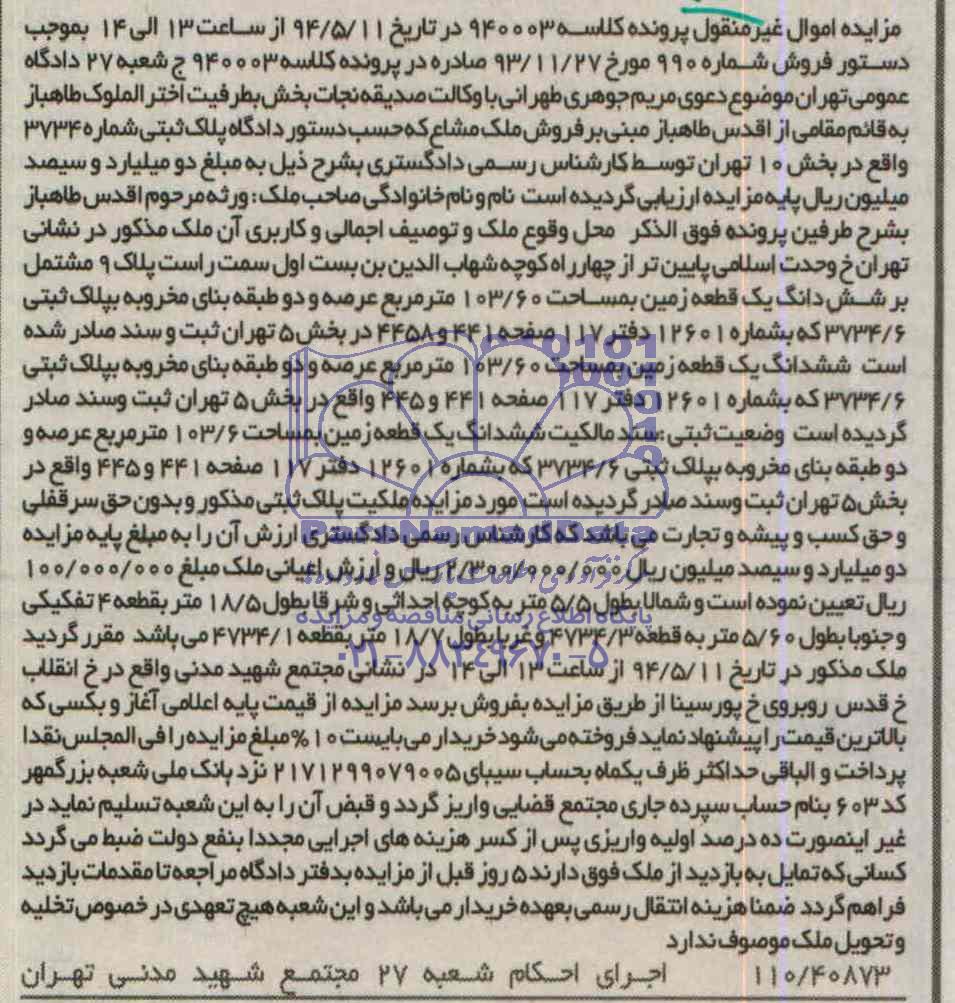 مزایده اموال غیرمنقول پرونده کلاسه ۹۴۰۰۰۳ در تاریخ ۹۴/۵/۱۱ از ساعت ۱۳ الی ۱۴ بموجب
دستور فروش شماره ۹۹۰ مورخ ۹۳/۱۱/۲۷ صادره در پرونده کلاسه ۹۴۰۰۰۳ ج شعبه ۲۷ دادگاه
عمومی تهران موضوع دعوی مریم جوهری طهرانی با وکالت صدیقه نجات بخش بطرفیت اختر الملوک طاهباز
به قائم مقامی از اقدس طاهباز مبنی بر فروش ملک مشاع که حسب دستور دادگاه پلاک ثبتی شماره ۳۷۳۴
واقع در بخش ۱۰ تهران توسط کارشناس رسمی دادگستری بشرح ذیل به مبلغ دو میلیارد و سیصد
میلیون ریال پایه مزایده ارزیابی گردیده است نام و نام خانوادگی صاحب ملک: ورثه مرحوم اقدس طاهباز
بشرح طرفین پرونده فوق الذکر محل وقوع ملک و توصیف اجمالی و کاربری آن ملک مذکور در نشانی
تهران خ وحدت اسلامی پایین تر از چهارراه کوچه شهاب الدین بن بست اول سمت راست پلاک ۹ مشتمل
بر شش دانگ یک قطعه زمین بمساحت ۱۰۳/۶۰ مترمربع عرصه و دو طبقه بنای مخروبه بپلاک ثبتی
۳۷۳۴/۶ که بشماره ۱۲۶۰۱ دفتر ۱۱۷ صفحه ۴۴۱ و ۴۴۵۸ در بخش ۵ تهران ثبت و سند صادر شده
است ششدانگ یک قطعه زمین بمساحت ۱۰۳/۶۰ مترمربع عرصه و دو طبقه بنای مخروبه بپلاک ثبتی
۳۷۳۴/۶ که بشماره ۱۲۶۰۱ دفتر ۱۱۷ صفحه ۴۴۱ و ۴۴۵ واقع در بخش ۵ تهران ثبت وسند صادر
گردیده است وضعیت ثبتی: سند مالکیت ششدانگ یک قطعه زمین بمساحت ۱۰۳/۶ مترمربع عرصه و
دو طبقه بنای مخروبه بپلاک ثبتی ۳۷۳۴/۶ که بشماره ۱۲۶۰۱ دفتر ۱۱۷ صفحه ۴۴۱ و ۴۴۵ واقع در
بخش ۵ تهران ثبت وسند صادر گردیده است مورد مزایده ملکیت پلاک ثبتی مذکور و بدون حق سرقفلی
و حق کسب و پیشه و تجارت می باشد که کارشناس رسمی دادگستری ارزش آن را به مبلغ پایه مزایده
دو میلیارد و سیصد میلیون ریال ۲/۳۰۰/۰۰۰/۰۰۰ ریال و ارزش اعیانی ملک مبلغ ۱۰۰/۰۰۰/۰۰۰
ریال تعیین نموده است و شمالا بطول ۵/۵ متر به کوچه احداثی و شرقا بطول ۱۸/۵ متر بقطعه ۴ تفکیکی
و جنوبا بطول ۵/۶۰ متر به قطعه ۴۷۳۴/۳ و غربا بطول ۱۸/۷ متر بقطعه ۴۷۳۴/۱ می باشد مقرر گردید
ملک مذکور در تاریخ ۹۴/۵/۱۱ از ساعت ۱۳ الی ۱۴ در نشانی مجتمع شهید مدنی واقع در خ انقلاب
خ قدس روبروی خ پورسینا از طریق مزایده بفروش برسد مزایده از قیمت پایه اعلامی آغاز و بکسی که
بالاترین قیمت را پیشنهاد نماید فروخته می شود خریدار می بایست ۱۰% مبلغ مزایده را فی المجلس نقدا
پرداخت و الباقی حداکثر ظرف یکماه بحساب سیبای ۲۱۷۱۲۹۹۰۷۹۰۰۵ نزد بانک ملی شعبه بزرگمهر
کد ۶۰۳ بنام حساب سپرده جاری مجتمع قضایی واریز گردد و قبض آن را به این شعبه تسلیم نماید در
غیر اینصورت ده درصد اولیه واریزی پس از کسر هزینه های اجرایی مجددا بنفع دولت ضبط می گردد
کسانی که تمایل به بازدید از ملک فوق دارند ۵ روز قبل از مزایده بدفتر دادگاه مراجعه تا مقدمات بازدید
فراهم گردد ضمنا هزینه انتقال رسمی بعهده خریدار می باشد و این شعبه هیچ تعهدی در خصوص تخلیه
و تحویل ملک موصوف ندارد
۱۱۰/۴۰۸۷۳ اجرای احکام شعبه ۲۷ مجتمع شهید مدنی تهران
پایگاه اطلاع رسانی مناقصه و مزایده
۰۲۱-۸۸۳۴۹۶۷۰-۵